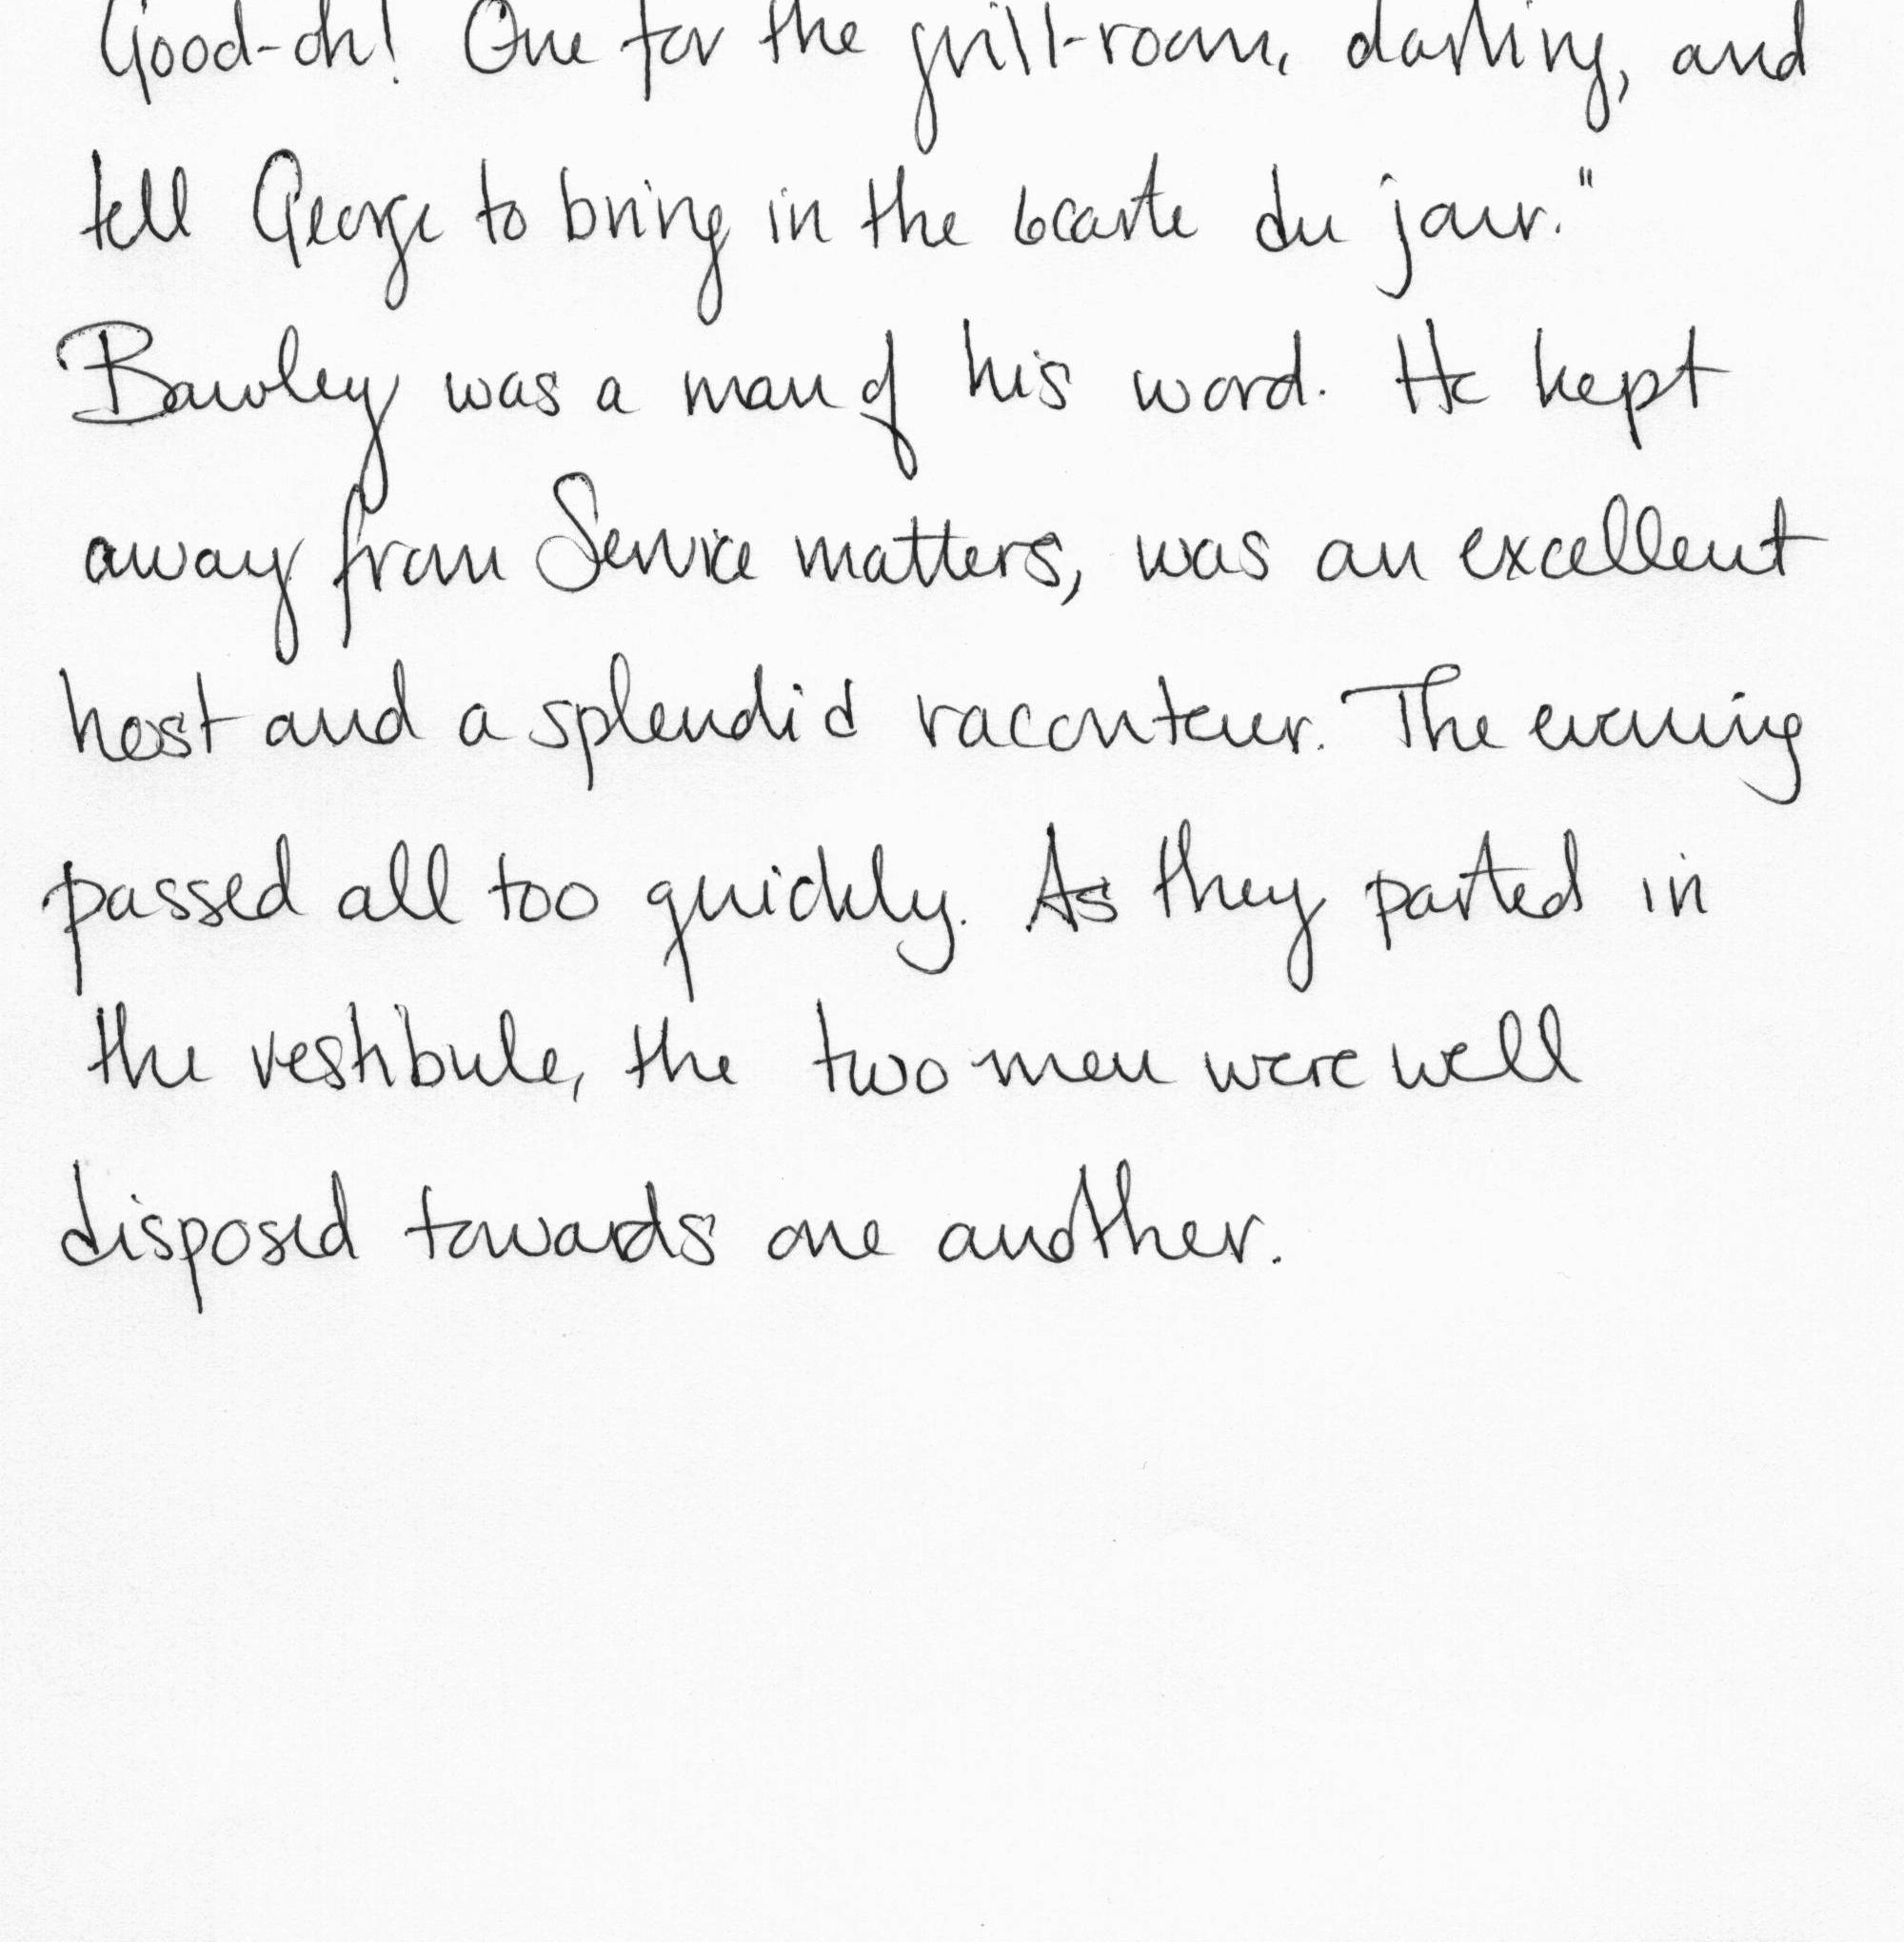 Good-oh! One for the grill-room, darling, and
tell George to bring in the carte du jour."
Bawley was a man of his word. He kept
away from Service matters, was an excellent
host and a splendid raconteur. The evening
passed all too quickly. As they parted in
the vestibule, the two men were well
disposed towards one another.